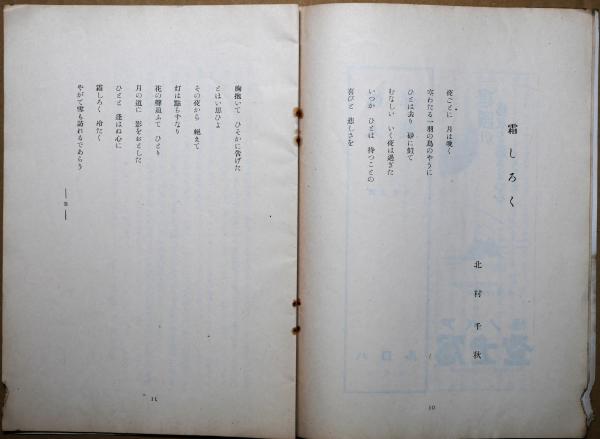 霜しろく
北村千秋
夜ごとに 月は暁く
空わたる一羽の鳥のやうに
ひとは去り 砂に似て
むなしい いく夜は過ぎた
いつか ひとは 待つことの
喜びと 悲しさを
10
胸抱いて ひそかに告げた
とほい思ひよ
その夜から 絶えて
灯は点もすなり
花の舞ふて ひとり
月の道に 影をおとした
ひとと 逢はね心に
霜しろく 冷たく
やがて雪も訪れるであらう
11